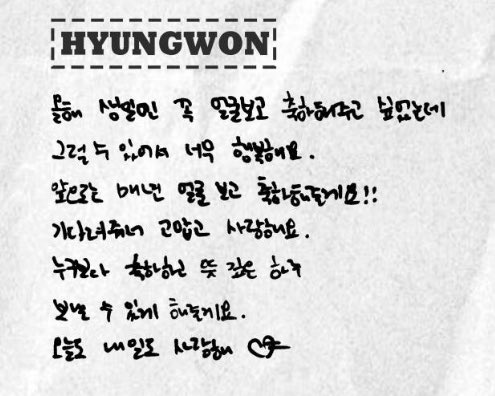 HYUNGWON
올해 생일엔 꼭 얼굴보고 축하해주고 싶었는데
그럴 수 있어서 너무 행복해요.
앞으로는 매년 얼굴 보고 축하해줄게요!!
기다려줘서 고맙고 사랑해요.
누구보다 축하하고 뜻 깊은 하루
보낼 수 있게 해줄게요.
오늘도 내일도 사랑해